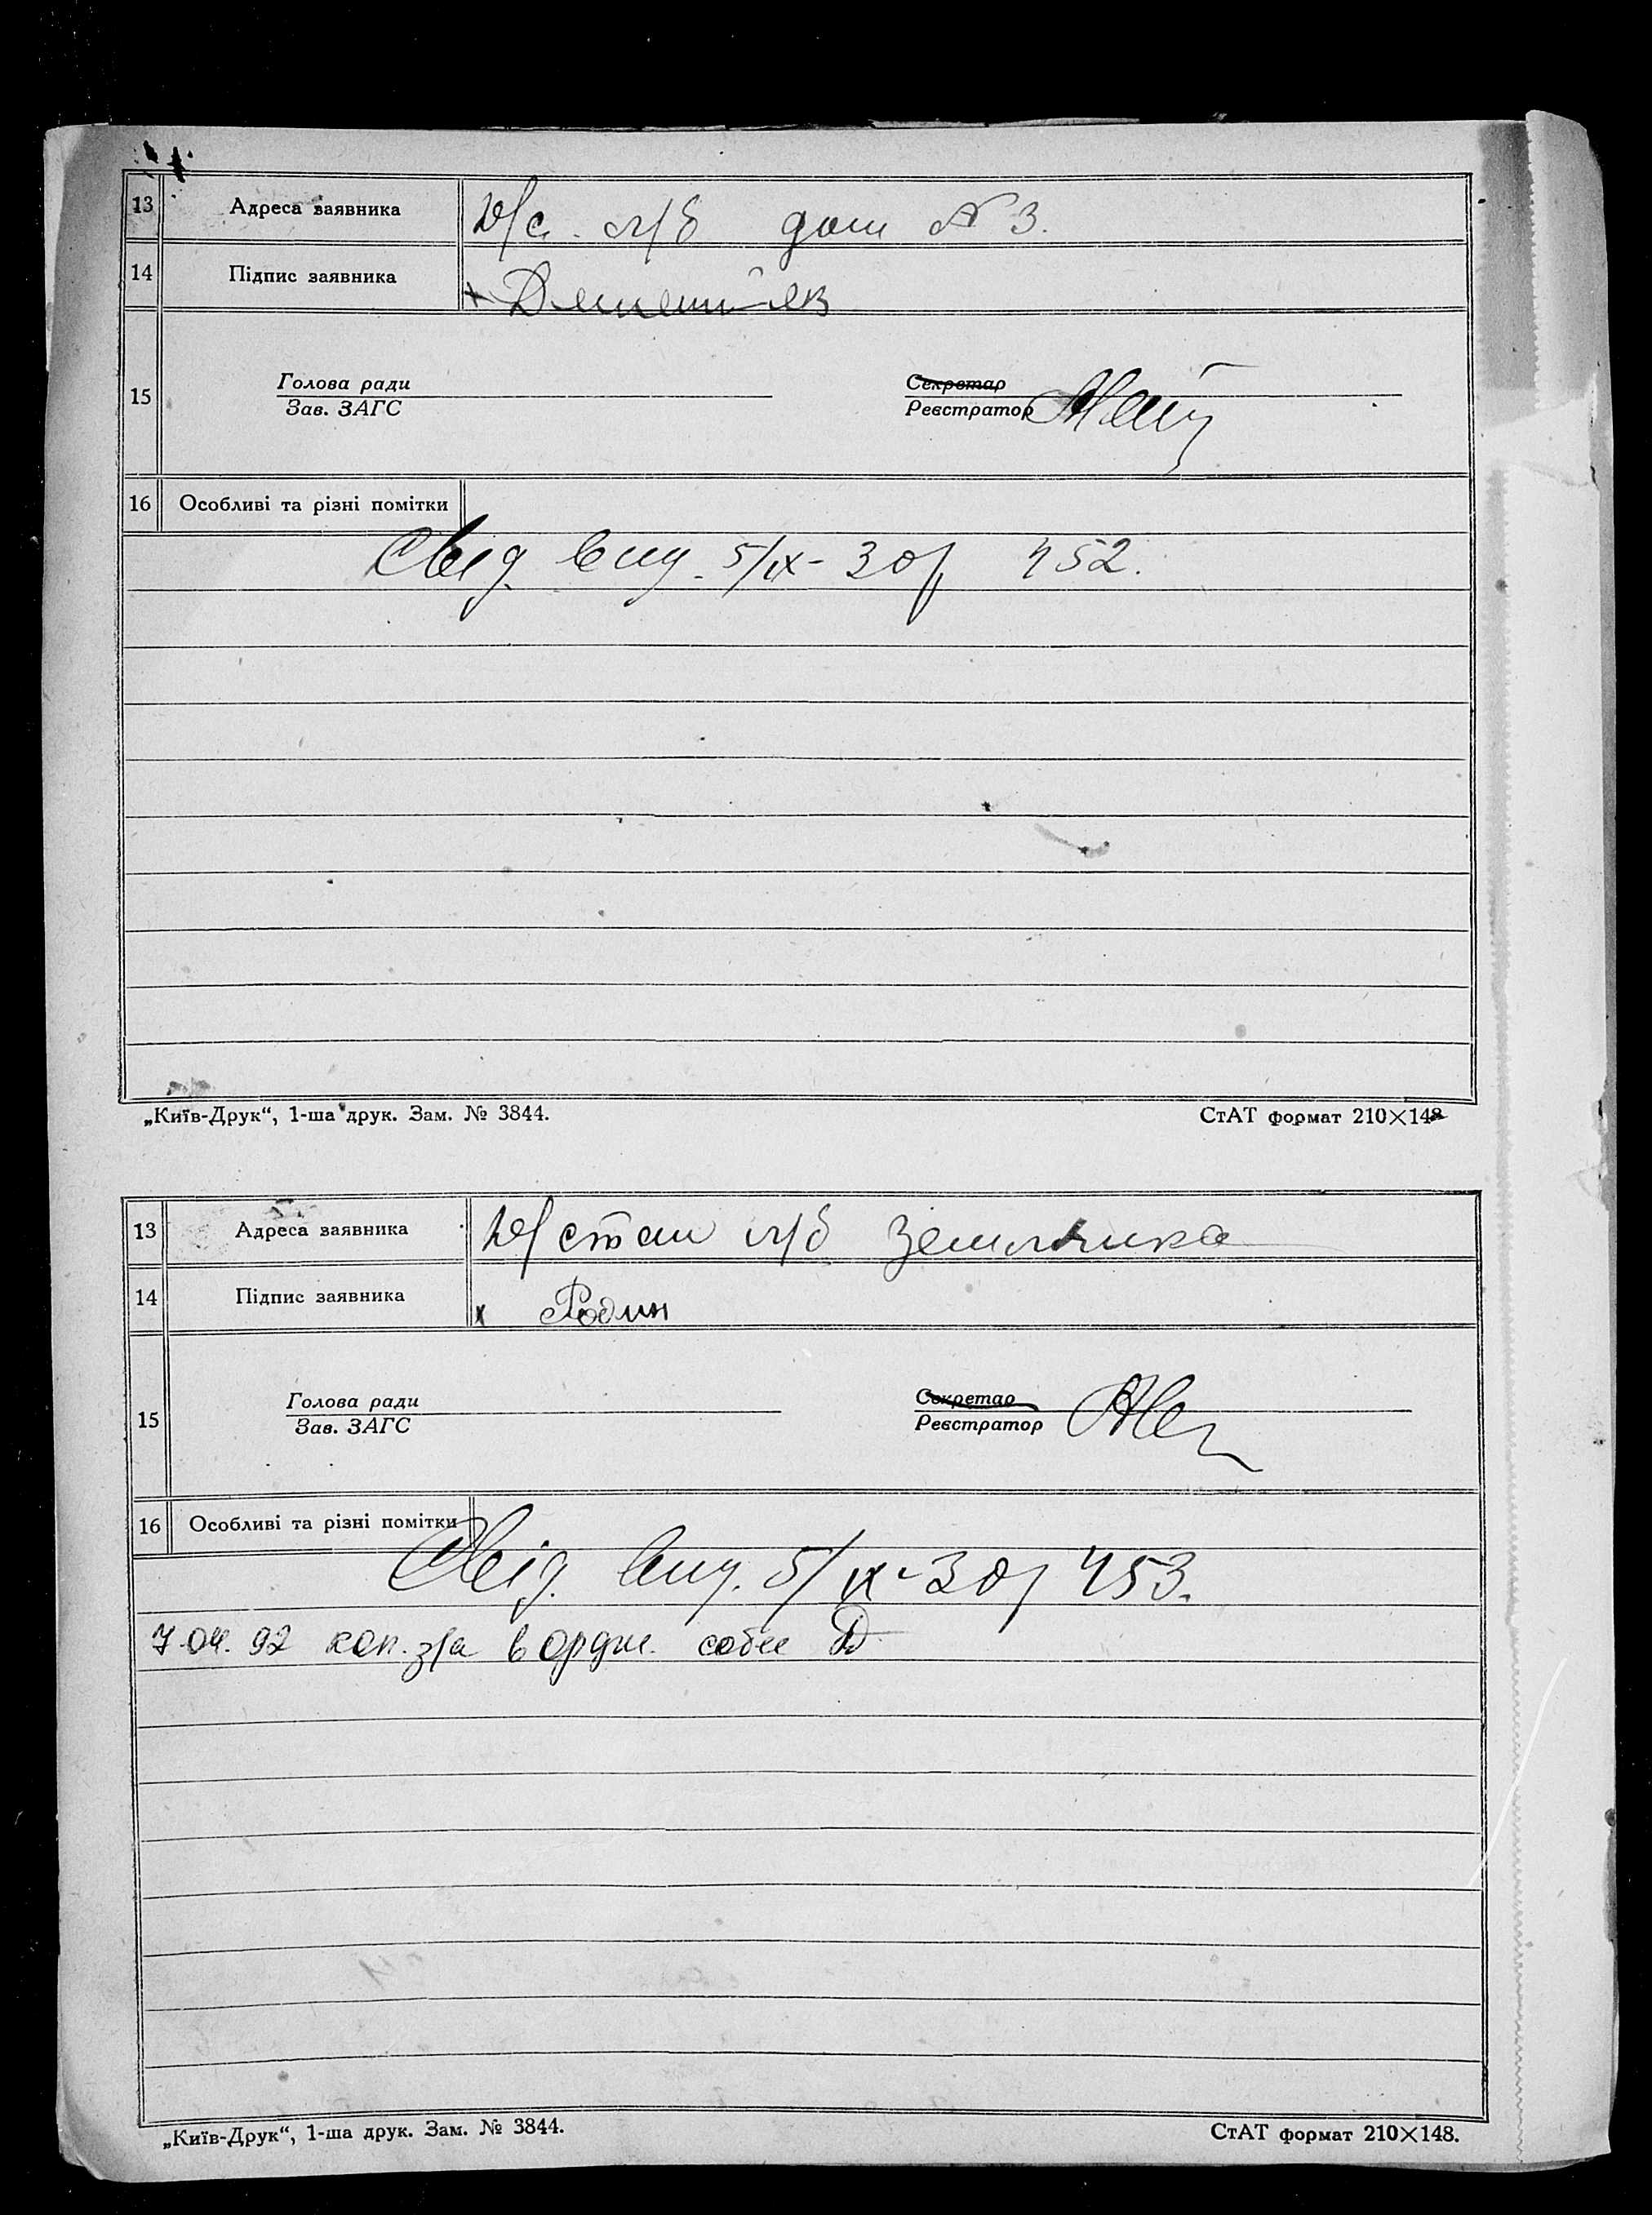 13 Адреса заявника Ю/с. л/б дом № 3.
14 Підпис заявника х
15 Голова ради Секретар
Зав. ЗАГС Реєстратор
16 Особливі та різні помітки
Свід. вид. 5/ІХ-30р 452.
„Київ-Друк“, 1-ша друк. Зам. № 3844. СтАТ формат 210×148
13 Адреса заявника Ю/стан л/б Землянка
14 Підпис заявника х Родин
15 Голова ради Секретар
Зав. ЗАГС Реєстратор
16 Особливі та різні помітки
Свід. вид. 5/ІХ-30р 453.
7.04.92 коп. з/а в ордж. собес
„Київ-Друк“, 1-ша друк. Зам. № 3844. СтАТ формат 210×148.